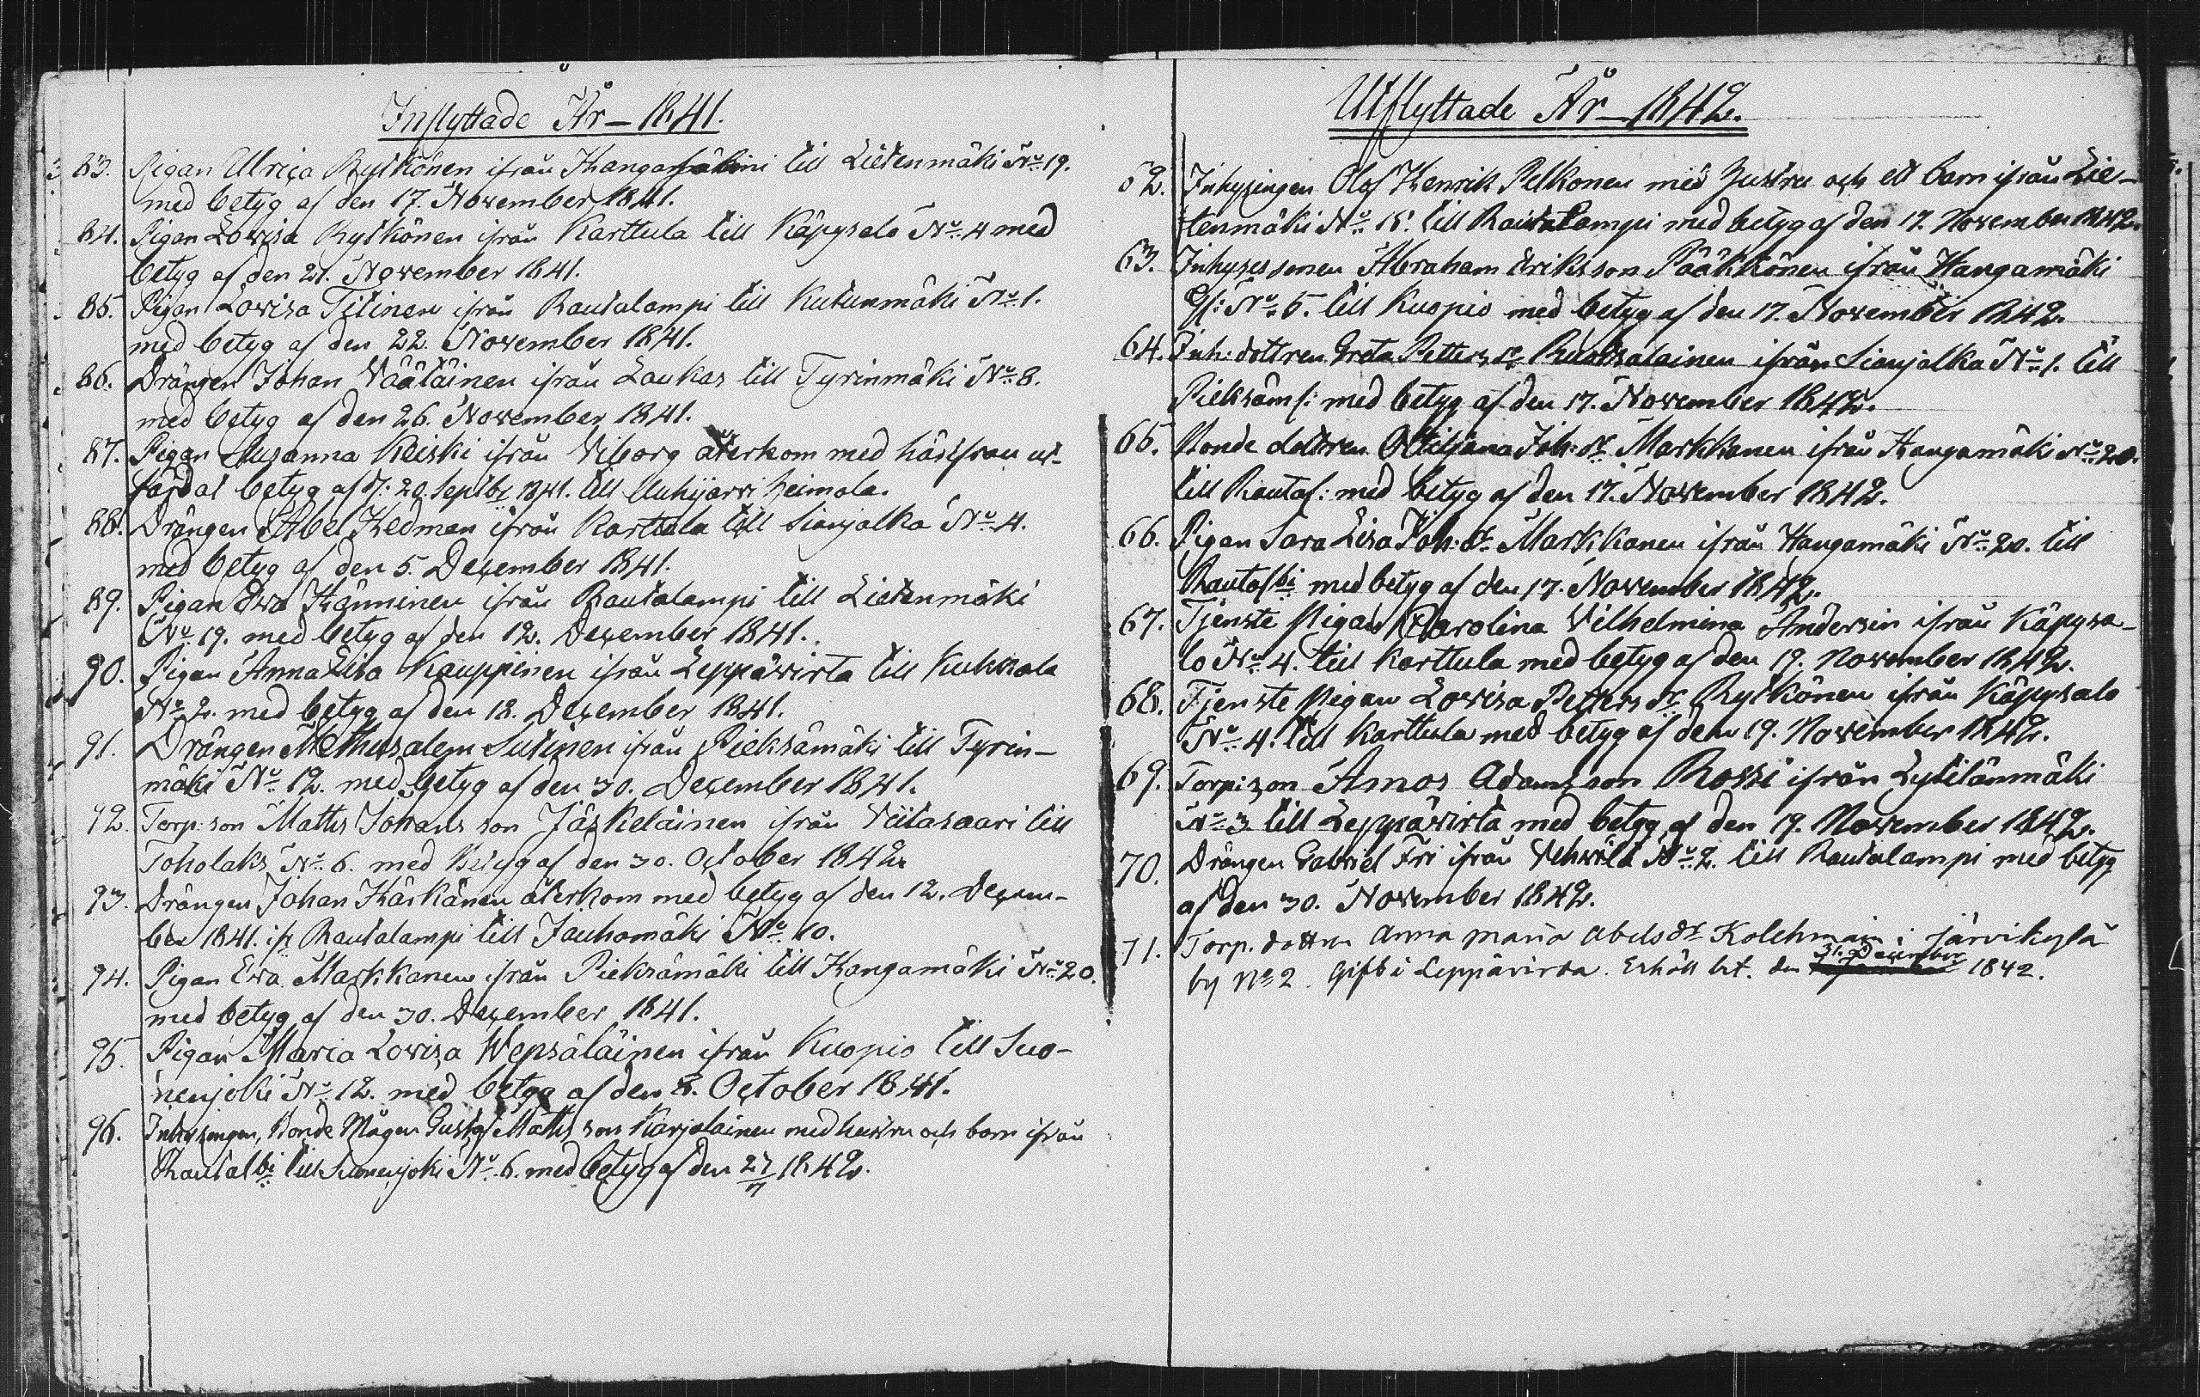 Inflyttade År – 1841.
83. Pigan Ulrica Rytkönen ifrån till Lietenmäki No 19.
med betyg af den 17. November 1841.
84. Pigan Lovisa Rytkönen ifrån Karttula till Käpysalo No 4 med
betyg af den 21. November 1841.
85. Pigan Lovisa Titinen ifrån Rautalampi till Kutunmäki No 1.
med betyg af den 22. November 1841.
86. Drängen Johan Väätäinen ifrån Laukas till Tyrinmäki No 8.
med betyg af den 26. November 1841.
87. Pigan Susanna Keiski ifrån Viborg återkom med härifrån ut-
betyg af d: 20. Septbr 1841. till heimola.
88. Drängen Abel Hedman ifrån Karttula till Sianjalka No 4.
med betyg af den 5. December 1841.
89. Pigan Eva Hänninen ifrån Rautalampi till Lietenmäki
No 19. med betyg af den 12. December 1841.
90. Pigan Anna Lisa Kauppinen ifrån Leppävirta till
No 2. med betyg af den 18. December 1841.
91. Drängen Methusalem Sutinen ifrån Pieksämäki till Tyrin-
mäki No 12. med betyg af den 30. December 1841.
92. Torp: son Matts Johans son Jäskeläinen ifrån Viitasaari till
Toholaks No 6. med Betyg af den 30. October 1842.
93. Drängen Johan Kärkänen återkom med betyg af den 12. Decem-
ber 1841. ifr Rautalampi till Jauhomäki No 10.
94. Pigan Eva Markkanen ifrån Pieksämäki till Hangamäki No 20.
med betyg af den 30. December 1841.
95. Pigan Maria Lovisa Wepsäläinen ifrån Kuopio till Suo-
nenjoki No 12. med betyg af den 8. October 1841.
96. Inhysingen, Bonde Mågen Gustaf Matts son Karjalainen med hustru och barn ifrån
Rautalbi till Suonenjoki No 6. med betyg af den 27/7 1842.
Utflyttade År – 1842.
62. Inhysingen Olof Henrik Pelkonen med hustru och ett barn ifrån Lie-
tenmäki No 15. till Rautalampi med betyg af den 17. November 1842.
63. Inhyses sonen Abraham Eriksson Pääkkönen ifrån Hangamäki
No 5. till Kuopio med betyg af den 17. November 1842.
64. Inh: dottren Greta Petters dr Ruotsalainen ifrån Sianjalka No 1. till
Pieksäms: med betyg af den 17. November 1842.
65. Bonde dottren Ottiljana Joh: dr Markkanen ifrån Hangamäki No 20.
till Rautal: med betyg af den 17. November 1842.
66. Pigan Sara Lisa Joh: dr Markkanen ifrån Hangamäki No 20. till
Rautalbi med betyg af den 17. November 1842.
67. Tjenste Pigan Carolina Vilhelmina Andersin ifrån Käpysa-
lo No 4. till Karttula med betyg af den 19. November 1842.
68. Tjenste Pigan Lovisa Petters dr Rytkönen ifrån Käpysalo
No 4. till Karttula med betyg af den 19. November 1842.
69. Torpi: son Amos Adamsson Rossi ifrån Lyytilänmäki
No 3 till Leppävirta med betyg af den 19. November 1842.
70. Drängen Gabriel Fri ifrån Vehvilä No 2. till Rautalampi med betyg
af den 30. November 1842.
71. Torp. dottren Anna Maria Abels dr Kolehmain i Järvikylä
by No 2 gift i Leppävirta. Erhöll bet. den 31. December 1842.